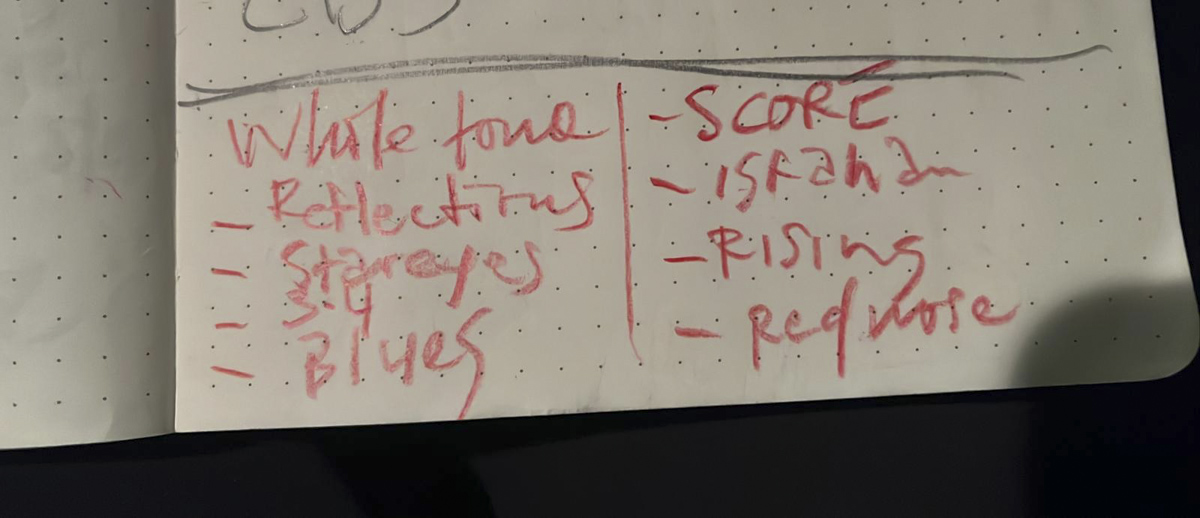 White
- Reflections
- Stareyes
- 34
- Blues
- SCORE
- Isfahan
- RISING
- Red nose